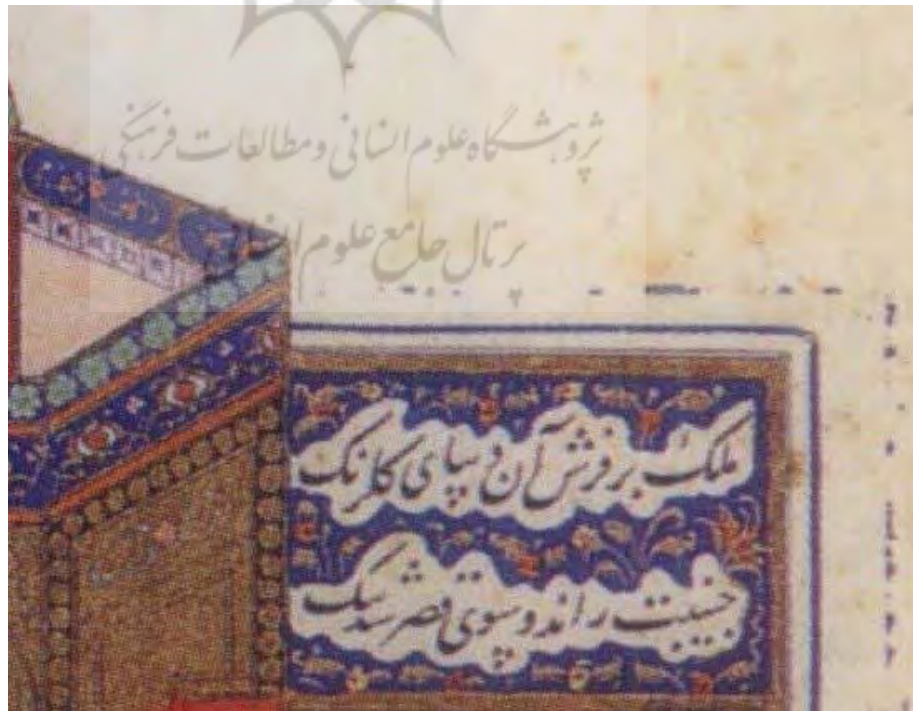 پژوهشگاه علوم انسانی و مطالعات فرهنگی
پرتال جامع علوم انسانی
ملک بر فرش آن دیبای گلرنگ
جنیبت راند و سوی قصر شد تنگ